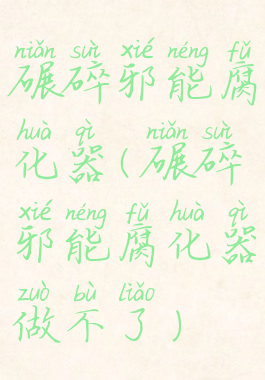 niǎn suì xié néng fǔ
碾碎邪能腐
huà qì niǎn suì
化器(碾碎
xié néng fǔ huà qì
邪能腐化器
zuò bù liǎo
做不了)